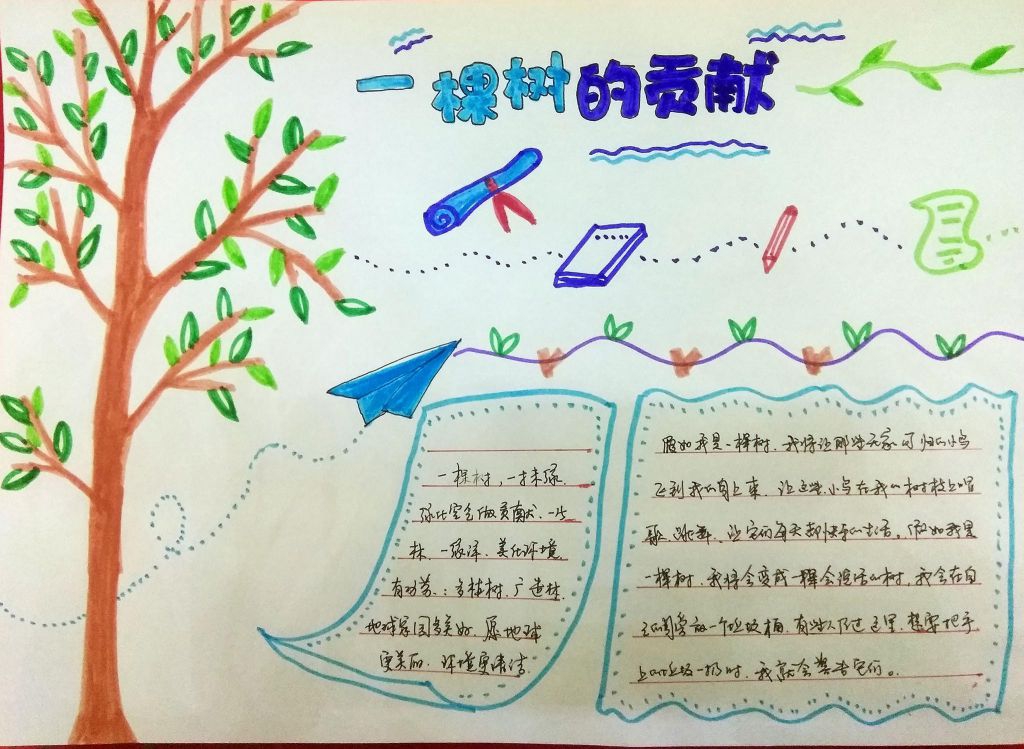 一棵树的贡献
一棵树,一抹绿
绿化空气做贡献.一片
林.一绿洋.美化环境
有功劳.:多植树.广造林.
地球家园多美好.愿地球
更美丽.环境更清洁.
假如我是一棵树.我将让那些无家可归的小鸟
飞到我的身上来.让这些小鸟在我的树枝上唱
歌.跳舞.让它们每天都快乐的生活。假如我是
一棵树.我将会变成一棵会说话的树,我会在自
己的旁放一个垃圾桶.有些人路过这里.想要把手
上的垃圾一扔时.我就会警告它们。